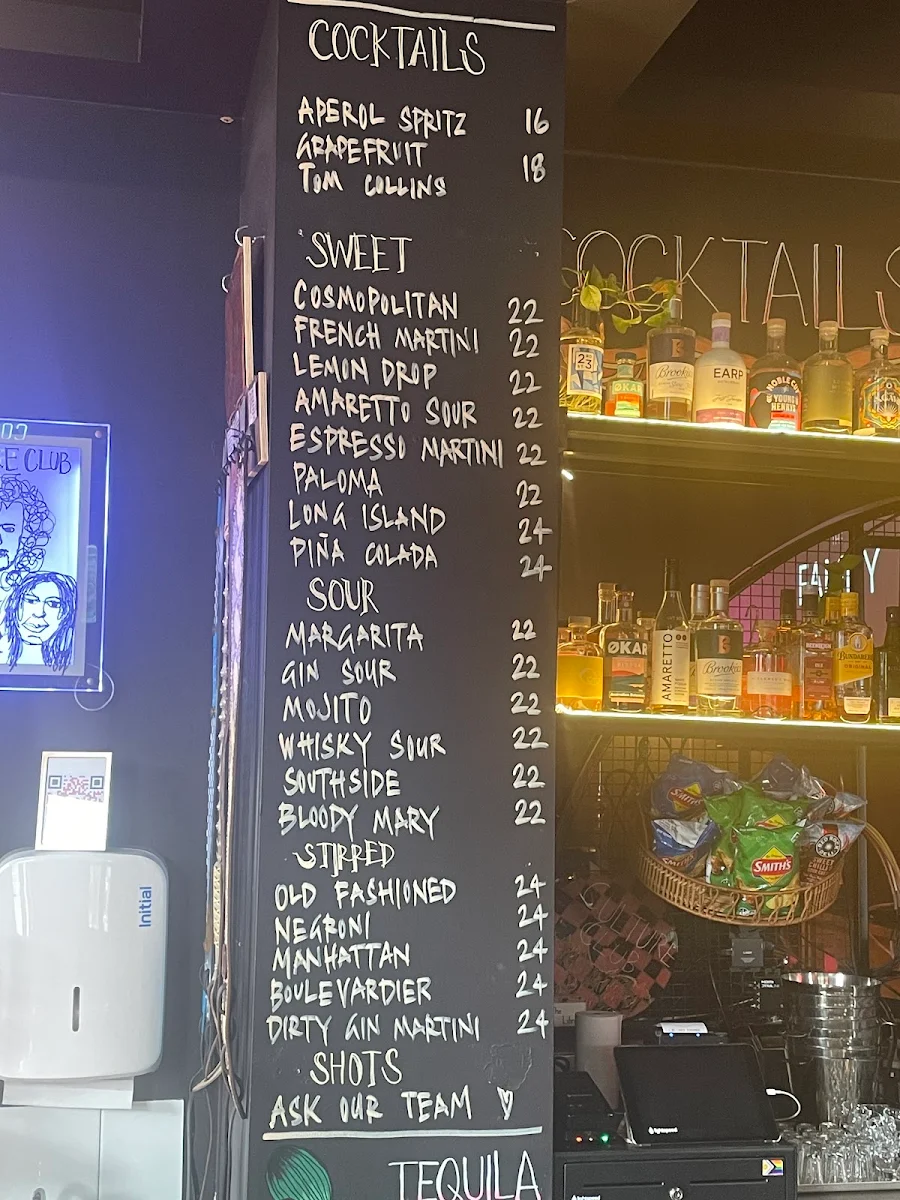 COCKTAILS
APEROL SPRITZ 16
GRAPEFRUIT
TOM COLLINS 18
SWEET
COSMOPOLITAN 22
FRENCH MARTINI 22
LEMON DROP 22
AMARETTO SOUR 22
ESPRESSO MARTINI 22
PALOMA 22
LONG ISLAND 24
PIÑA COLADA 24
SOUR
MARGARITA 22
GIN SOUR 22
MOJITO 22
WHISKY SOUR 22
SOUTHSIDE 22
BLOODY MARY 22
STIRRED
OLD FASHIONED 24
NEGRONI 24
MANHATTAN 24
BOULEVARDIER 24
DIRTY GIN MARTINI 24
SHOTS
ASK OUR TEAM ♡
TEQUILA
CLUB
Initial
COCKTAILS
23
ØKAR
EARP
NOBLE
& YOUNG
HENRYS
ØKAR
AMARETTO
BUNDABERG
ORIGINAL
SMITH'S
SWEET
CHILLI
CULTURE
CLUB
lightspeed